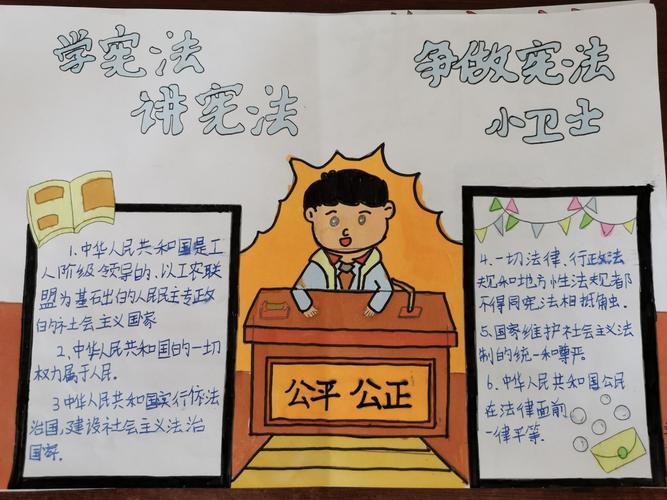 学宪法
讲宪法
争做宪法
小卫士
1.中华人民共和国是工
人阶级领导的、以工农联
盟为基石出的人民民主专政
的社会主义国家
2、中华人民共和国的一切
权力属于人民.
3中华人民共和国实行依法
治国,建设社会主义法治
国家.
公平 公正
4.一切法律、行政法
规和地方性法规者都
不得同宪法相抵触.
5.国家维护社会主义法
制的统一和尊严
6.中华人民共和国公民
在法律面前
一律平等.